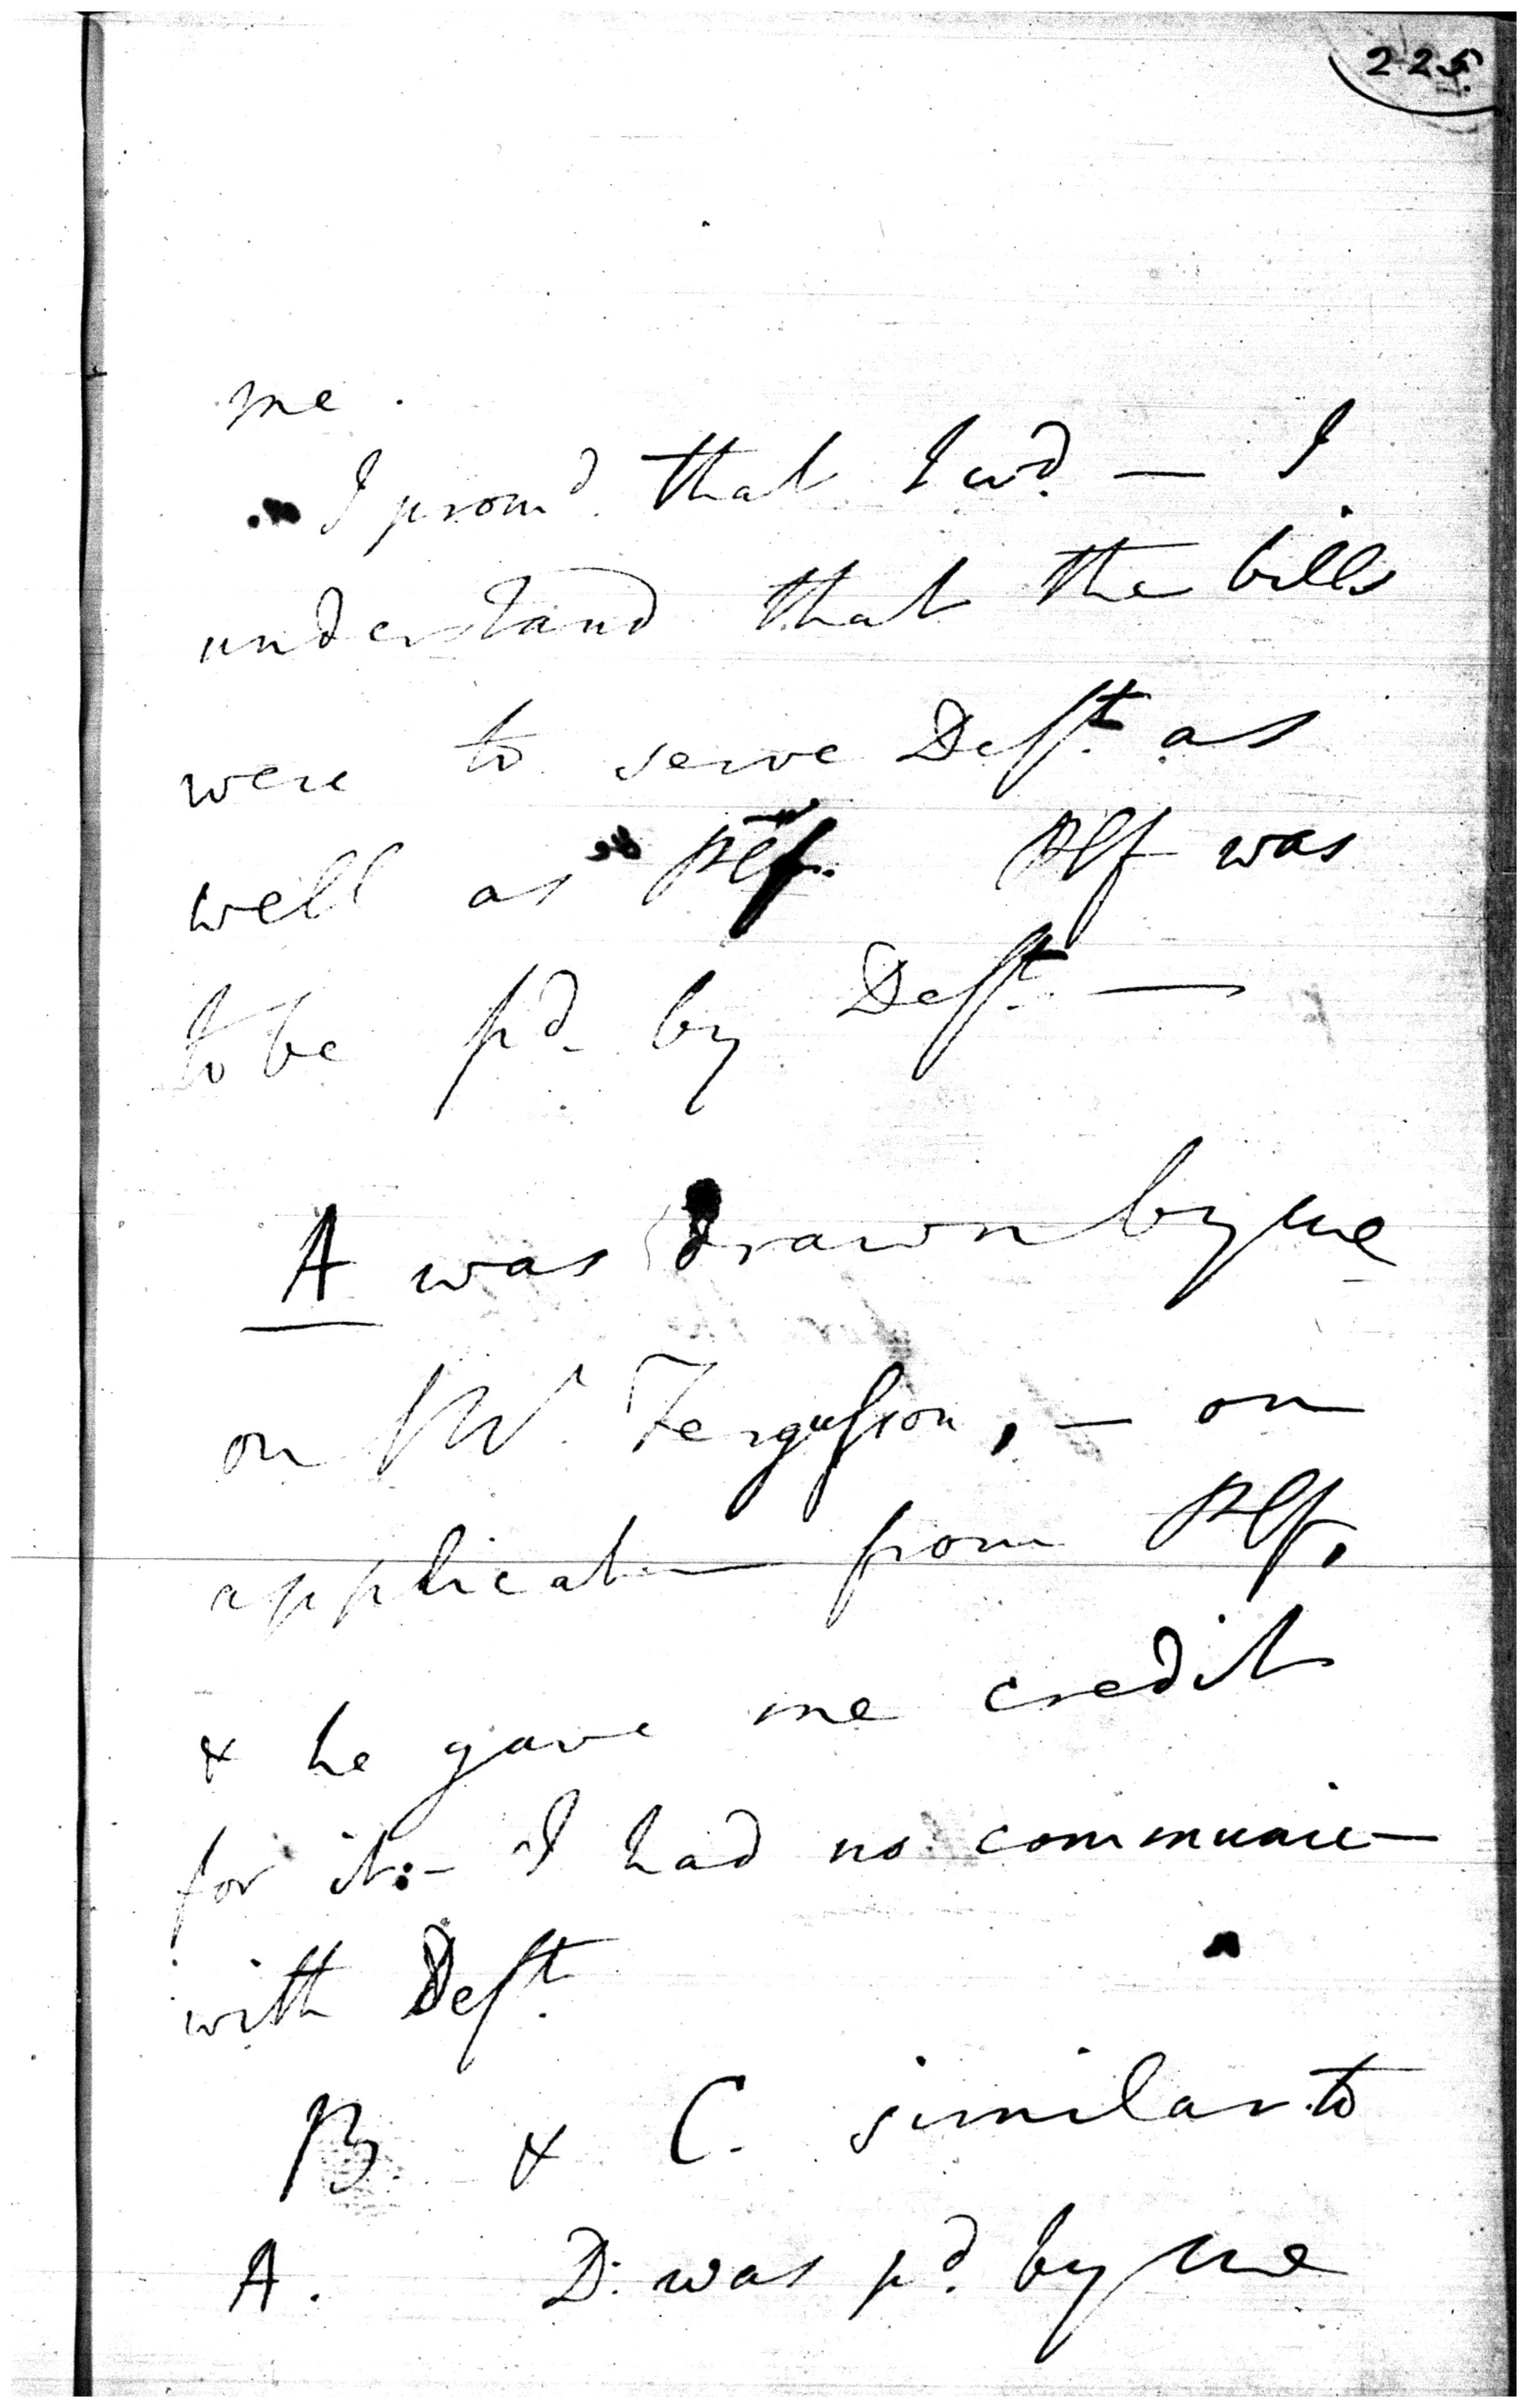 225.
me.
I prom'd. that I wd. — I
understand that the bills
were to serve Deft. as
well as Plf. Plf was
to be pd. by Deft. —
A was drawn by me
on W. Fergusson, — on
applicatn from Plf,
& he gave me credit
for it:- I had no communic—
with Deft.
B. & C. similar to
A. D: was pd. by me